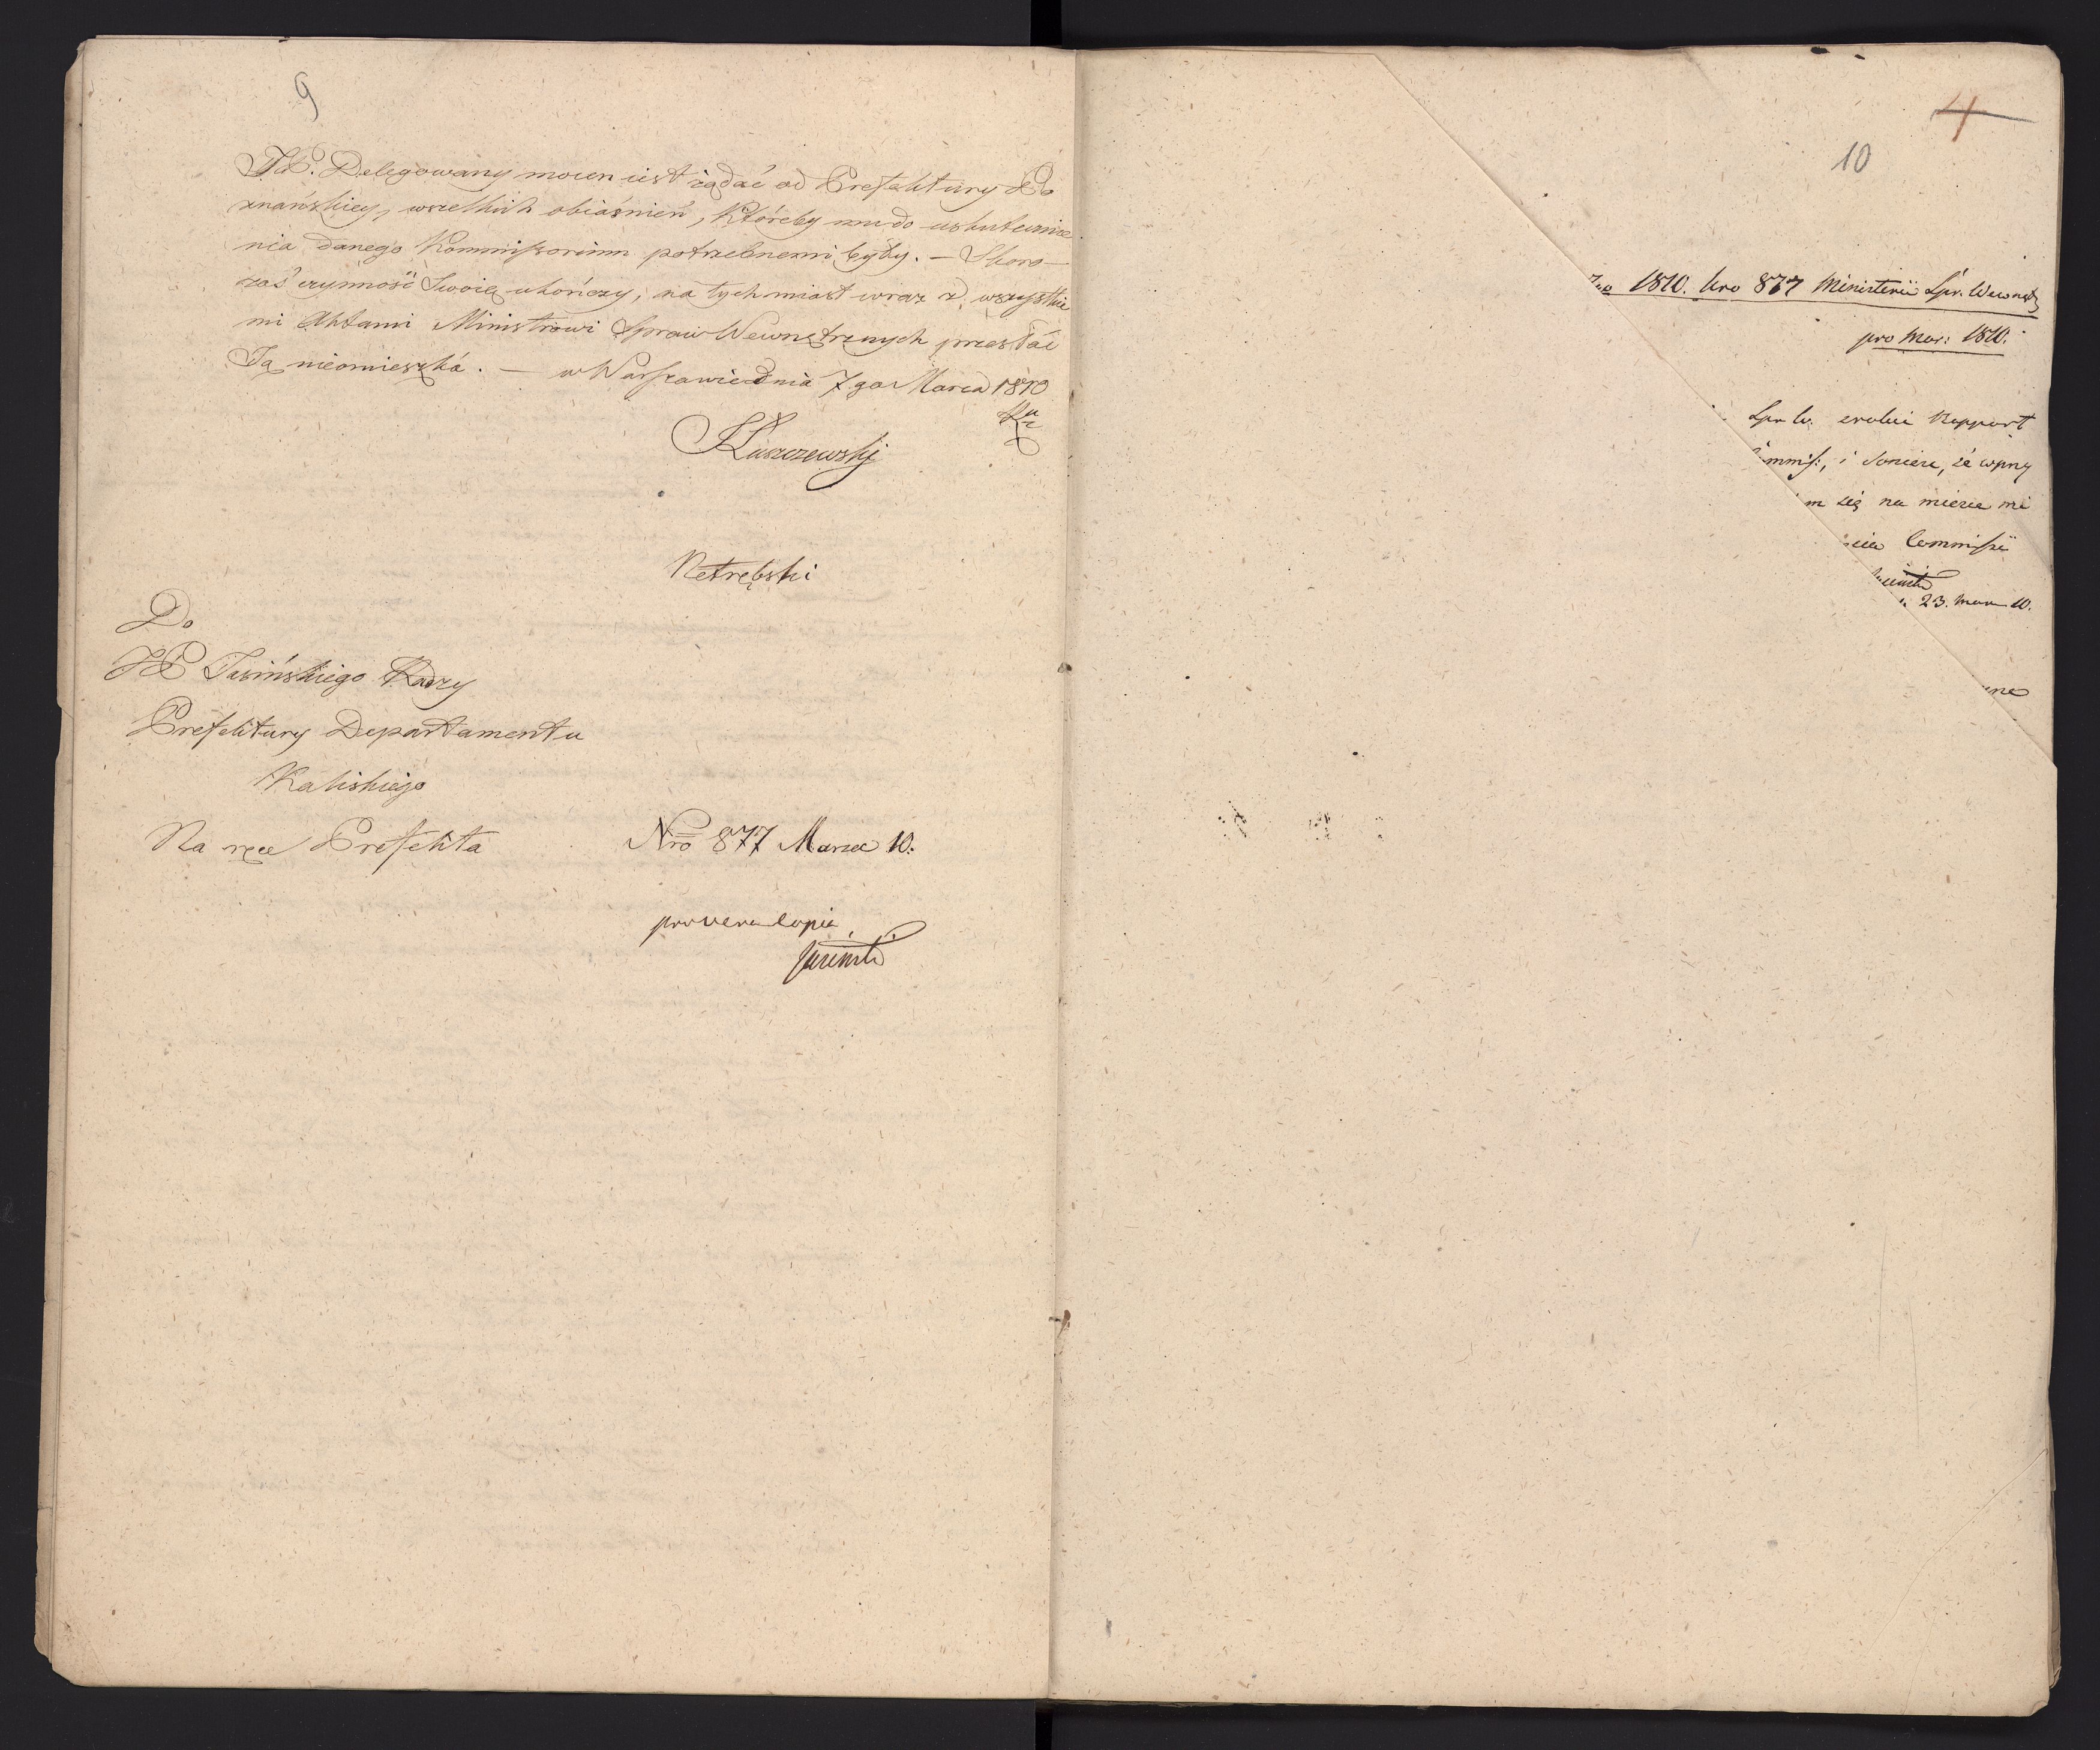 9
JP. Delegowany mocen iest żądać od Prefektury Po
znańskiey, wszelkich obiaśnień, któreby mu do uskutecznie
nia danego Kommissorium potrzebnemi były. — Skoro
zaś czynność Swoię ukończy, na tych miast wraz z wszystkie
mi Aktami Ministrowi Spraw Wewnętrznych przesłać
Ją nieomieszka. — w Warszawie dnia 7go Marca 1810
Łuszczewski
Netrębski
Do
JP Jasińskiego Radzy
Prefektury Departamentu
Kaliskiego
Na ręce Prefekta
Nro 877 Marzec 10.
pro vera copia
Jasiński
4
10
1810. Nro 877 Ministerii Spr. Wewnętrz
pro Mar: 1810.
Spr W. Rapport
i doniese, że wpny
m się na miesce
Commissii
23. Mar 10.